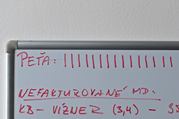 PEŤA: ||||||||||||||||
NEFAKTUROVANÉ MD:
KB - VÍZNER (3,4) -